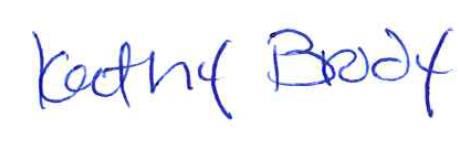 Kathy Brody